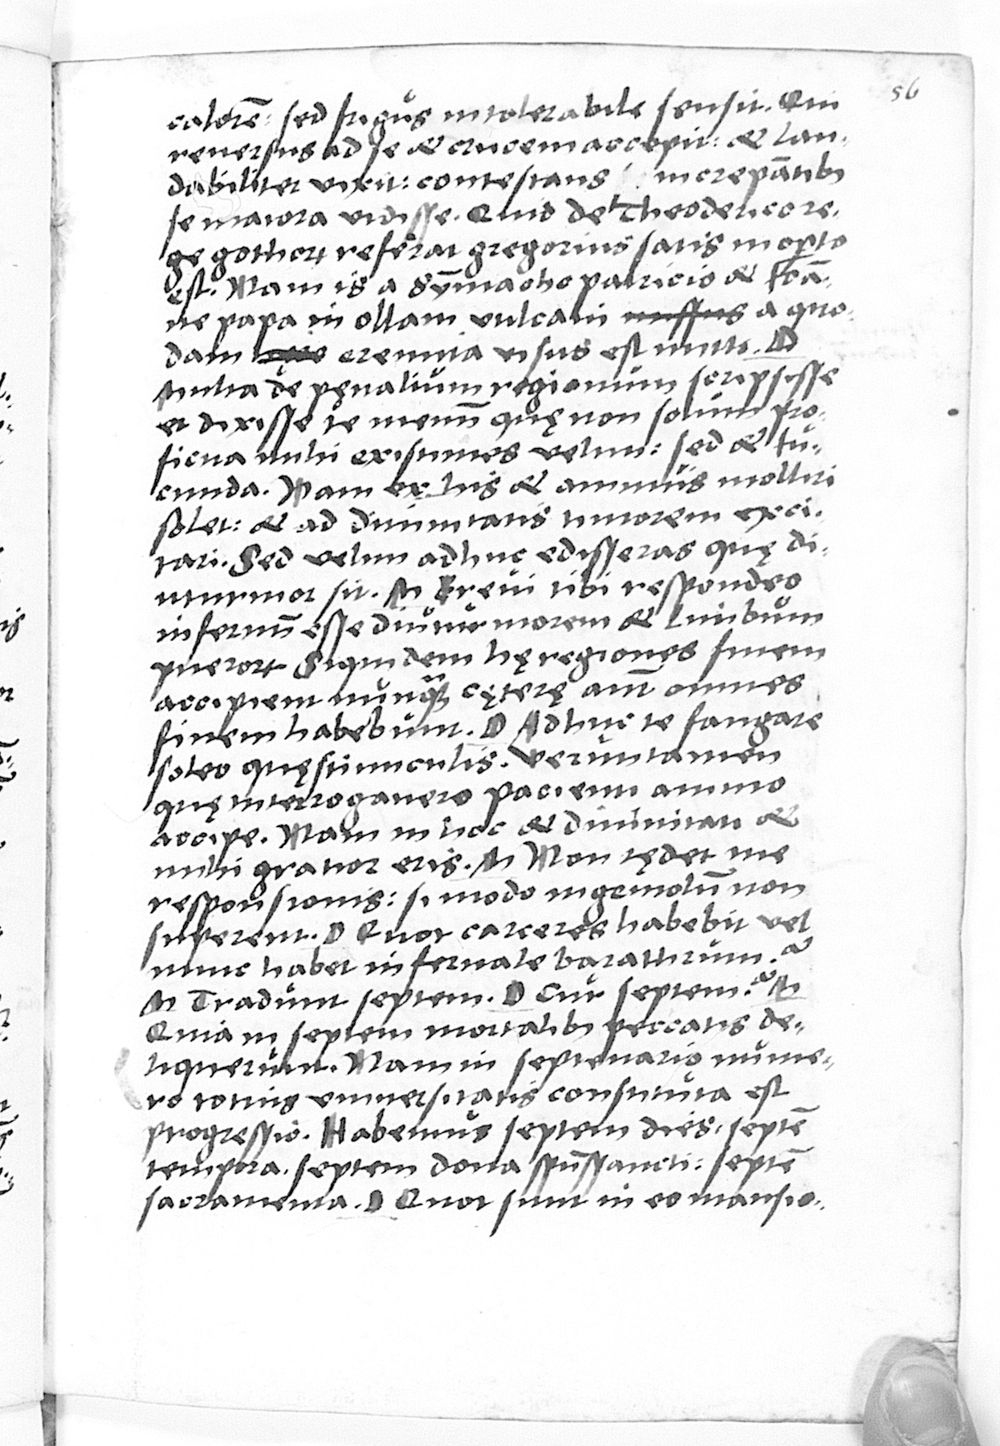 56
calorē: sed frigus intolerabile sensit. Qui
reversus ad se & crucem accepit: & lau-
dabiliter vixit: contestans increpātibꝫ
se maiora vidisse. Quid de Theoderico re-
ge gothorꝝ referat gregorius satis in apto
est. Nam is a Sȳmacho patricio & Ioā-
ne papa in ollam vulcani a quo-
dam eremita visus est mitti. D
Multa de pęnalium regionum scripsisse
et dixisse te memī quę non solum pro-
ficua mihi existimes velim: sed & iu-
cunda. Nam ex his & animus molliri
solet: & ad divinitatis timorem exci-
tari. Sed velim adhuc edisseras quę di-
uturnior sit. M Brevi tibi respondeo
infernū esse diuturniorem & Limbum
puerorꝝ Siquidem hę regiones finem
accipient nunqꝫ cęterę aūt omnes
finem habebunt. D Adhuc te fatigare
soleo quęstiunculis. Veruntamen
quę interrogavero pacienti animo
accipe. Nam in hoc & divinitati &
mihi gratior eris. M Non tędet me
responsionis: si modo ingeniolū non
superent. D Quot carceres habebit vel
nunc habet infernale barathrum?
M Tradunt septem. D Cur septem? M
Quia in septem mortalibꝫ peccatis de-
liquerunt. Nam in septenario nume-
ro totius universitatis constituta est
progressio. Habemus septem dies, septē
tempora, septem dona spūssancti: septē
sacramenta. D Quot sunt in eo mansio-